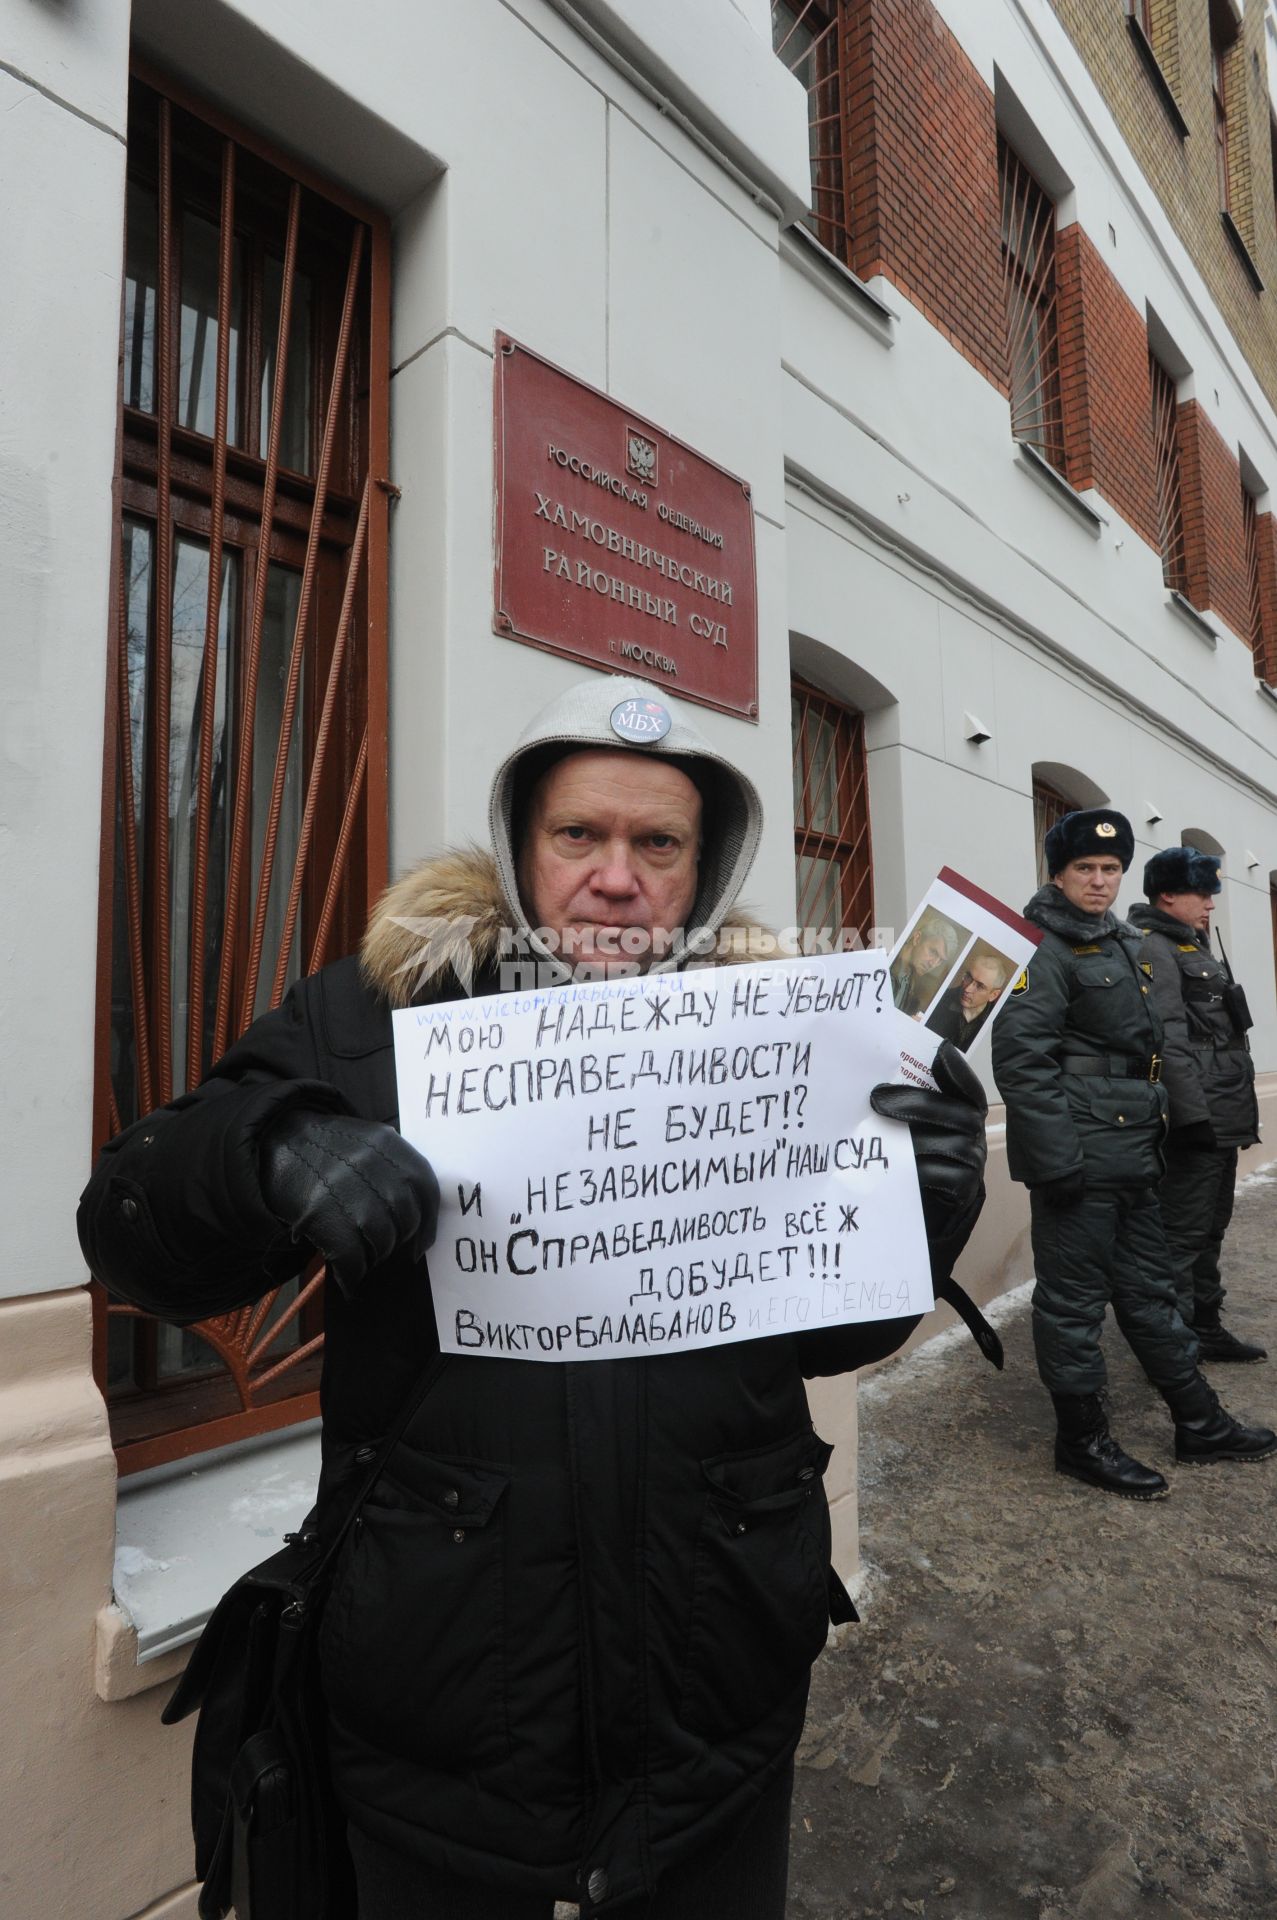 РОССИЙСКАЯ ФЕДЕРАЦИЯ
ХАМОВНИЧЕСКИЙ
РАЙОННЫЙ СУД
г. МОСКВА
Я
МБХ
КОМСОМОЛЬСКАЯ
ПРАВДА МЕДИА
www.victorbalabanov.ru
МОЮ НАДЕЖДУ НЕ УБЬЮТ?
НЕСПРАВЕДЛИВОСТИ
НЕ БУДЕТ!?
И „НЕЗАВИСИМЫЙ" НАШ СУД
ОН „СПРАВЕДЛИВОСТЬ ВСЁ Ж
ДОБУДЕТ!!!
ВИКТОР БАЛАБАНОВ И ЕГО СЕМЬЯ